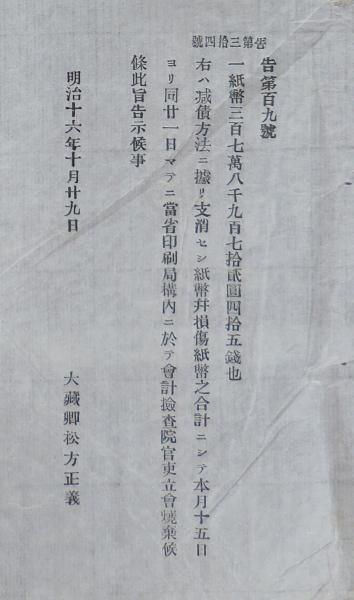 告第三拾四號
告第百九號
一紙幣三百七萬八千九百七拾貳圓四拾五錢也
右ハ减債方法ニ據リ支消セシ紙幣幷損傷紙幣之合計ニシテ本月十五日
ヨリ同廿一日マテニ當省印刷局構內ニ於テ會計撿查院官吏立會燒棄候
條此旨吿示候事
明治十六年十月廿九日
大藏卿松方正義